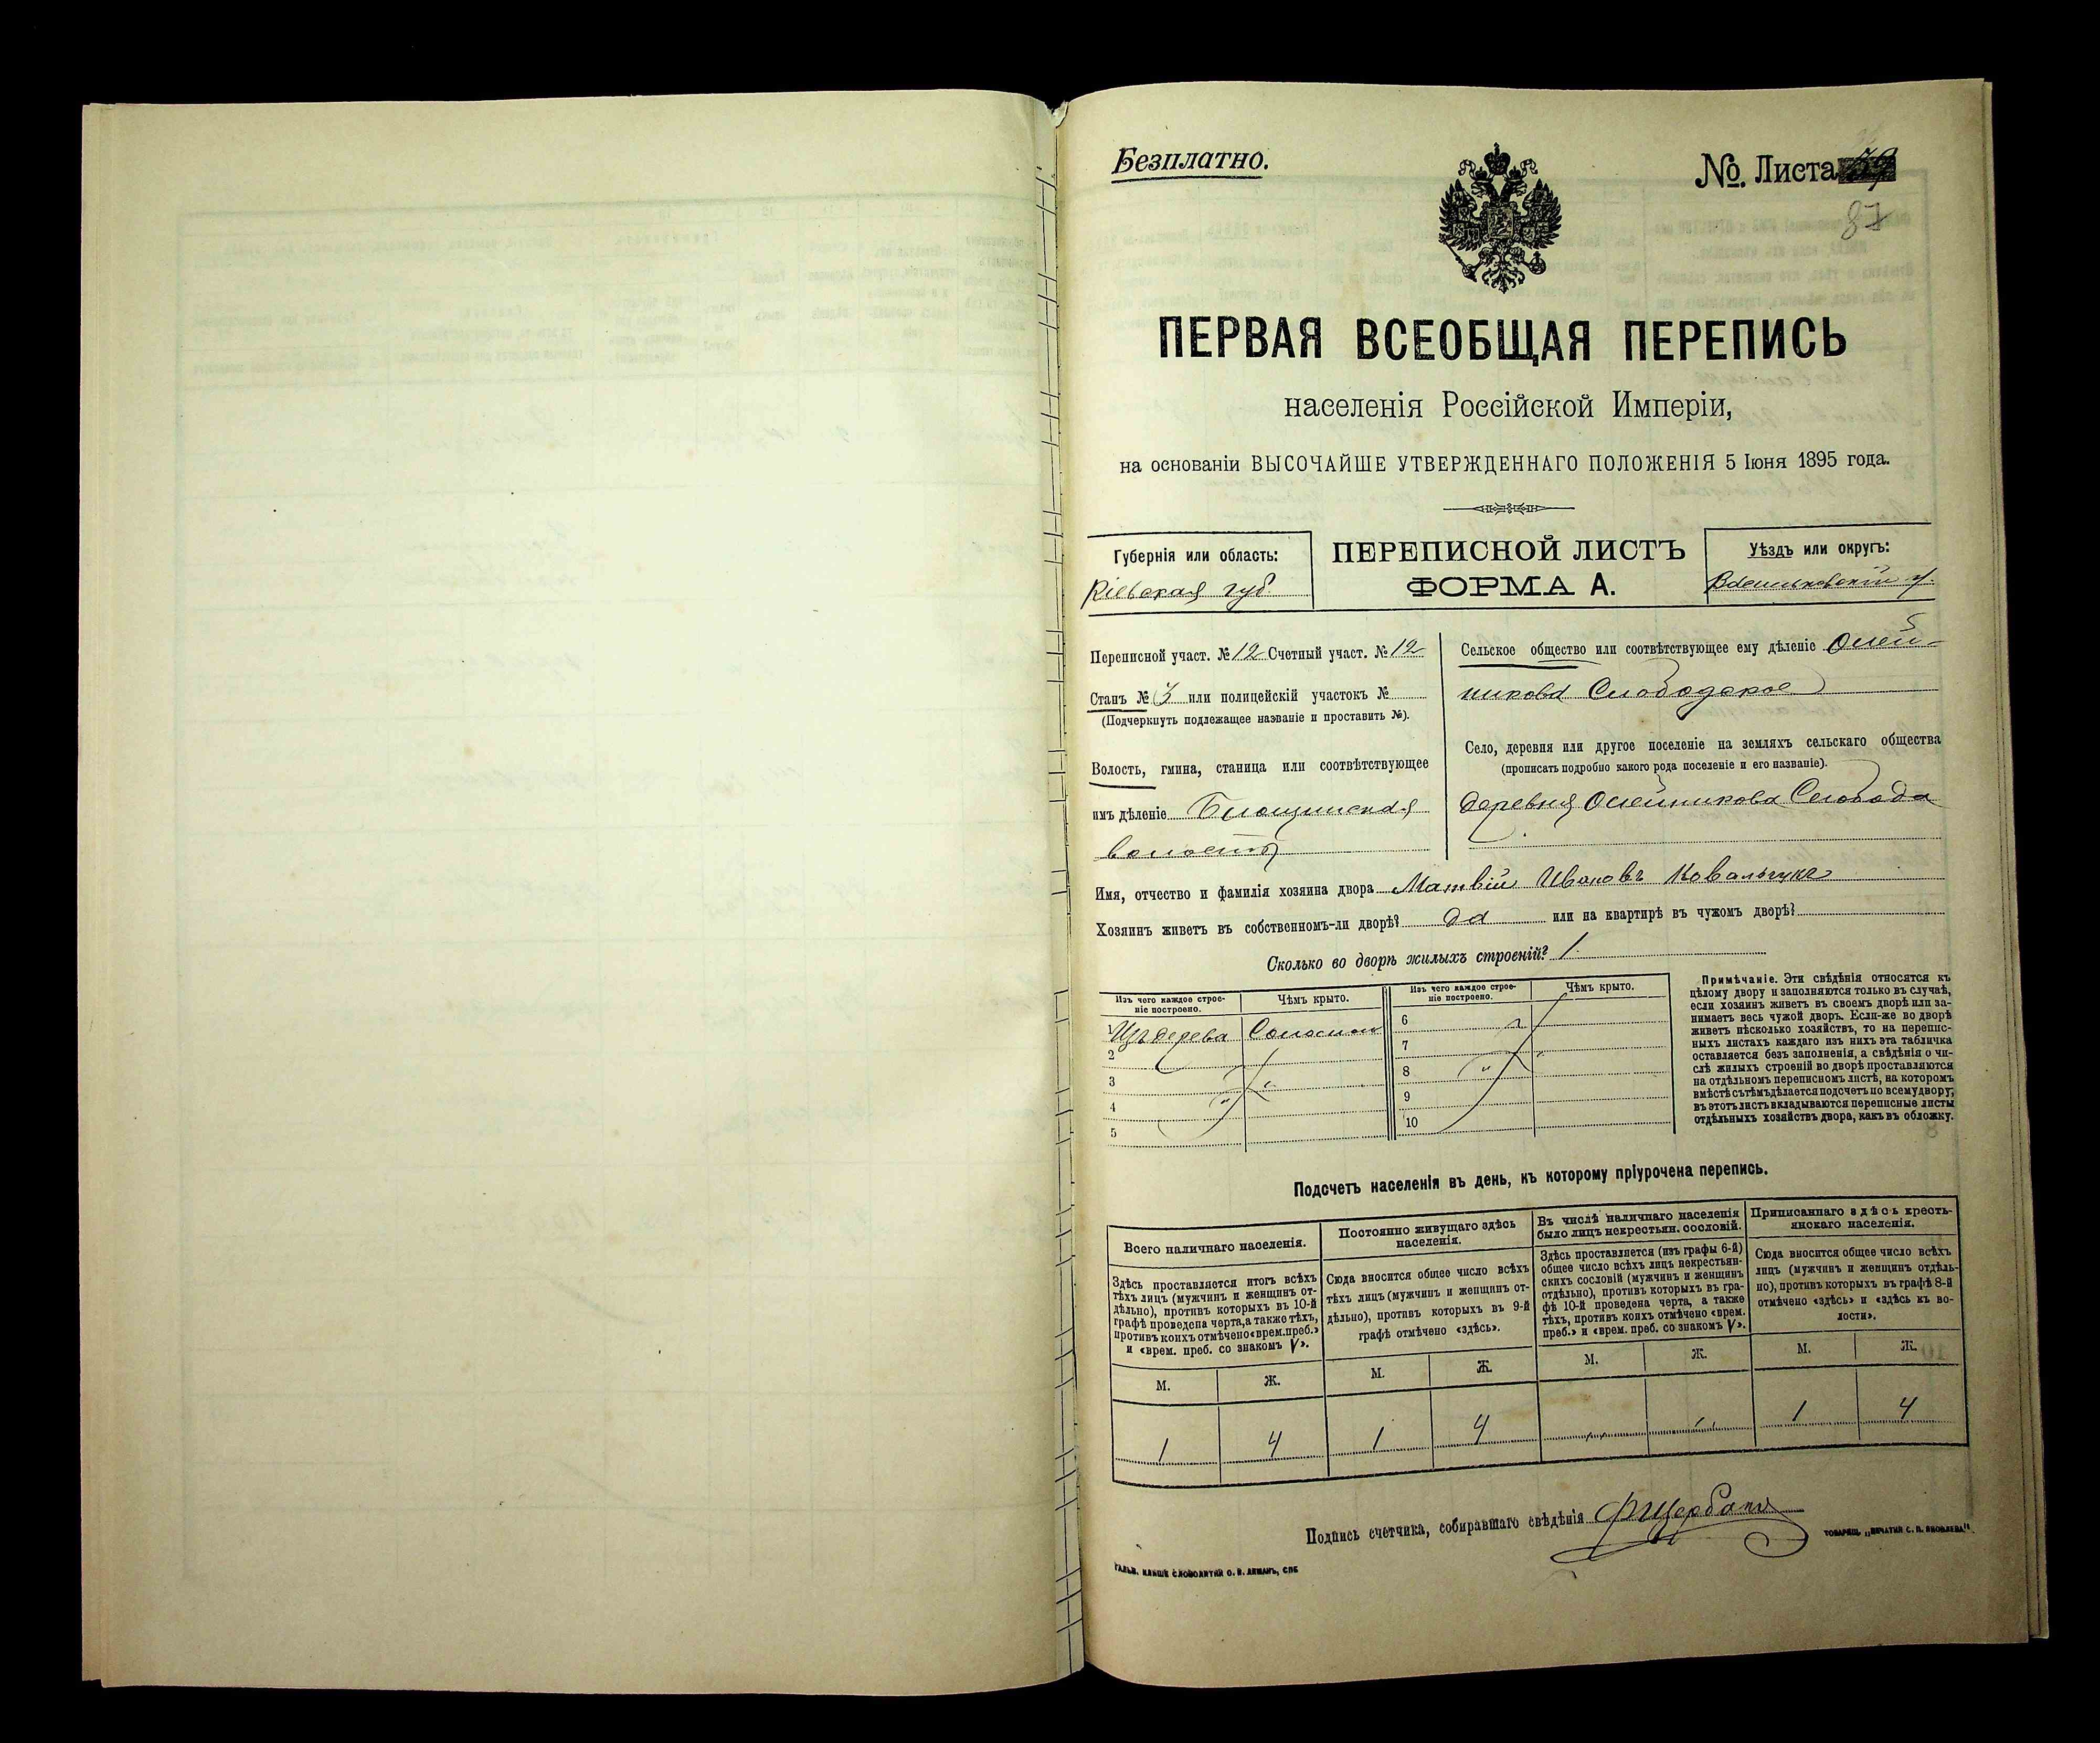 Безплатно.
№. Листа 39
87
ПЕРВАЯ ВСЕОБЩАЯ ПЕРЕПИСЬ
населенія Россійской Имперіи,
на основаніи ВЫСОЧАЙШЕ УТВЕРЖДЕННАГО ПОЛОЖЕНІЯ 5 Іюня 1895 года.
Губернія или область:
Кіевская губ.
ПЕРЕПИСНОЙ ЛИСТЪ
ФОРМА А.
Уѣздъ или округъ:
Васильковскій у.
Переписной участ. № 12 Счетный участ. № 12
Станъ № 3 или полицейскій участокъ №
(Подчеркнуть подлежащее названіе и проставить №).
Волость, гмина, станица или соотвѣтствующее
имъ дѣленіе Блощинская
волость
Сельское общество или соотвѣтствующее ему дѣленіе Олей-
никова Слободское
Село, деревня или другое поселеніе на земляхъ сельскаго общества
(прописать подробно какого рода поселеніе и его названіе).
деревня Олейникова Слобода
Имя, отчество и фамилія хозяина двора Матвій Ивановъ Ковальчукъ
Хозяинъ живетъ въ собственномъ-ли дворѣ? да или на квартирѣ въ чужомъ дворѣ?
Сколько во дворѣ жилыхъ строеній? 1.
Изъ чего каждое строе-
ніе построено.
Чѣмъ крыто.
Изъ чего каждое строе-
ніе построено.
Чѣмъ крыто.
1 Изъ дерева Соломой
2
3
4
5
6
7
8
9
10
Примѣчаніе. Эти свѣдѣнія относятся къ
цѣлому двору и заполняются только въ случаѣ,
если хозяинъ живетъ въ своемъ дворѣ или за-
нимаетъ весь чужой дворъ. Если-же во дворѣ
живетъ нѣсколько хозяйствъ, то на перепис-
ныхъ листахъ каждаго изъ нихъ эта табличка
оставляется безъ заполненія, а свѣдѣнія о чи-
слѣ жилыхъ строеній во дворѣ проставляются
на отдѣльномъ переписномъ листѣ, на которомъ
вмѣстѣ съ тѣмъ дѣлается подсчетъ по всему двору;
въ этотъ листъ вкладываются переписные листы
отдѣльныхъ хозяйствъ двора, какъ въ обложку.
Подсчетъ населенія въ день, къ которому пріурочена перепись.
Всего наличнаго населенія.
Здѣсь проставляется итогъ всѣхъ
тѣхъ лицъ (мужчинъ и женщинъ от-
дѣльно), противъ которыхъ въ 10-й
графѣ проведена черта, а также тѣхъ,
противъ коихъ отмѣчено «врем. преб.»
и «врем. преб. со знакомъ V».
Постоянно живущаго здѣсь
населенія.
Сюда вносится общее число всѣхъ
тѣхъ лицъ (мужчинъ и женщинъ от-
дѣльно), противъ которыхъ въ 9-й
графѣ отмѣчено «здѣсь».
Въ числѣ наличнаго населенія
было лицъ некрестьян. сословій.
Здѣсь проставляется (изъ графы 6-й)
общее число всѣхъ лицъ некрестьян-
скихъ сословій (мужчинъ и женщинъ
отдѣльно), противъ которыхъ въ гра-
фѣ 10-й проведена черта, а также
тѣхъ, противъ коихъ отмѣчено «врем.
преб.» и «врем. преб. со знакомъ V».
Приписаннаго здѣсь кресть-
янскаго населенія.
Сюда вносится общее число всѣхъ
лицъ (мужчинъ и женщинъ отдѣль-
но), противъ которыхъ въ графѣ 8-й
отмѣчено «здѣсь» и «здѣсь къ во-
лости».
М. Ж. М. Ж. М. Ж. М. Ж.
1 4 1 4 " " 1 4
Подпись счетчика, собиравшаго свѣдѣнія ФЩербакъ
ТОВАРИЩ. „ПЕЧАТНЯ С. П. ЯКОВЛЕВА".